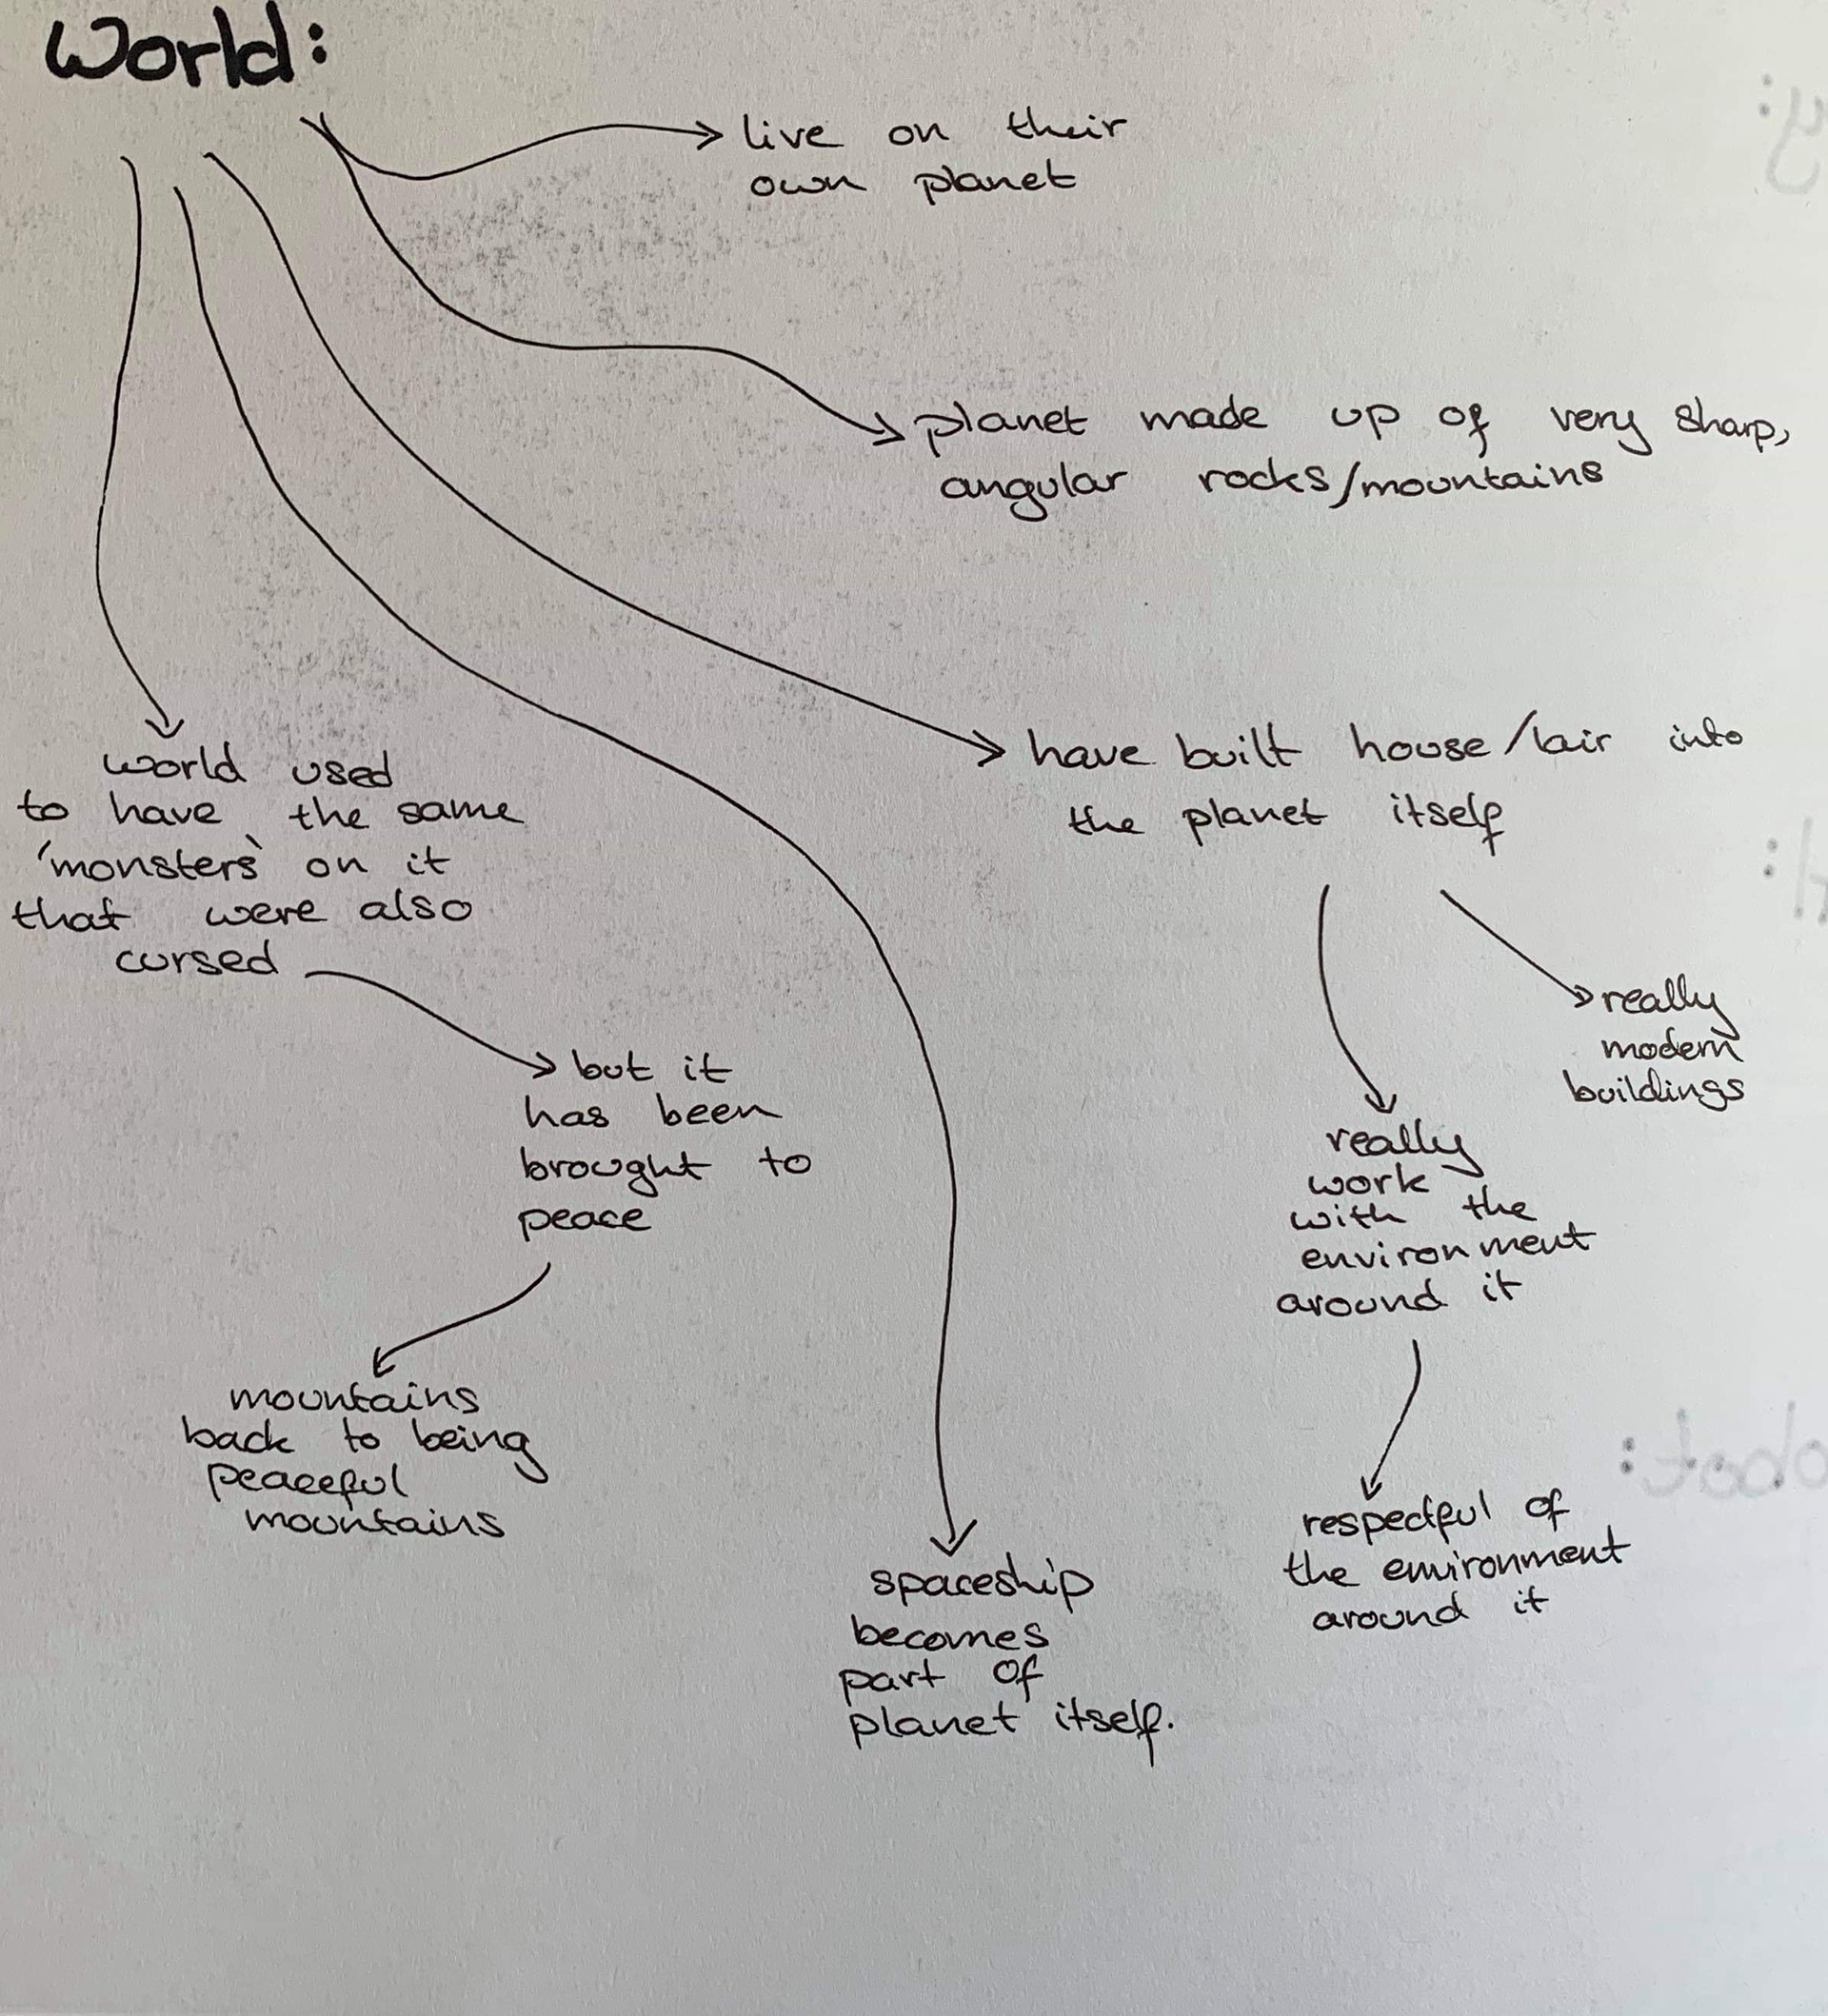 World:
live on their
own planet
planet made up of very sharp,
angular rocks/mountains
have built house/lair into
the planet itself
really
modern
buildings
really
work
with the
environment
around it
respectful of
the environment
around it
spaceship
becomes
part of
planet itself.
world used
to have the same
'monsters' on it
that were also
cursed
but it
has been
brought to
peace
mountains
back to being
peaceful
mountains